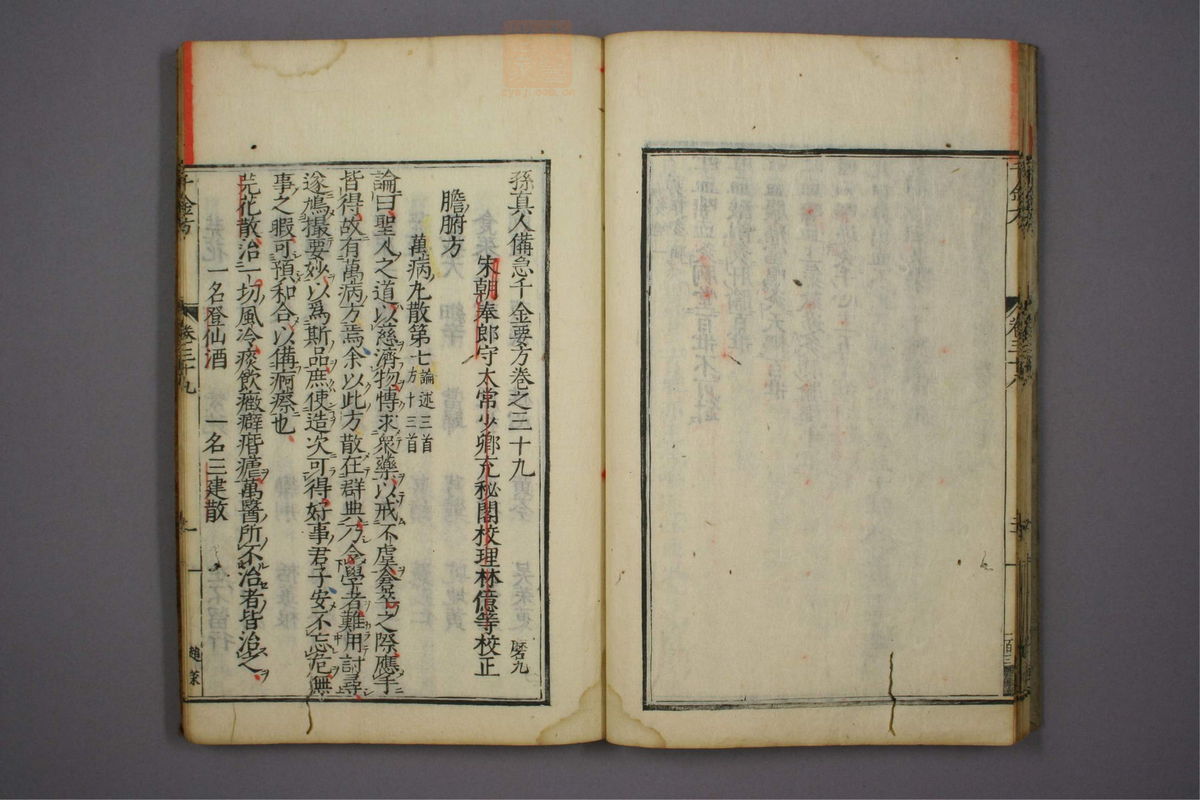 孫真人備急千金要方卷之三十九
宋朝奉郎守太常少卿充秘閣校理林億等校正
膽腑方
萬病丸散第七論述三首方十三首
論曰聖人之道以慈濟物博求衆藥以戒不虞倉卒之際應手
皆得故有萬病方焉余以此方散在群典分令學者難用討尋
遂鳩撮要妙以爲斯品庶使造次可得好事君子安不忘危無
事之暇可預和合以備痾瘵也
芫花散治一切風冷痰飲癥癖痎瘧萬醫所不治者皆治之
一名登仙酒 一名三建散
千金方
卷三十九
一